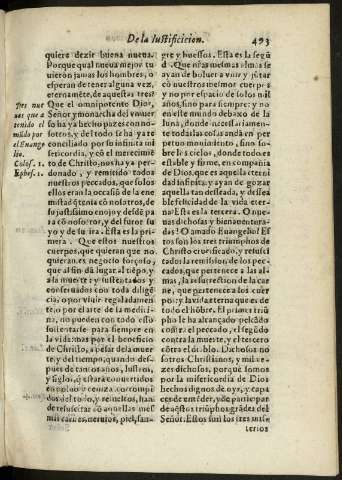 De la Iustificicion. 493
quiere dezir buena nueua.
Porque qual nueua mejor tu
uieron jamas los hombres, o
esperan de tener alguna vez,
eternamẽte, de aquestas tres?
Que el omnipotente Dios,
Señor y monarcha del vniuer
so ha ya hecho pazes con no-
sotros, y del todo se ha ya re
conciliado por su infinita mi
sericordia, y cõ el merecimiẽ
to de Christo, nos ha ya per
donado, y remitido todos
nuestros peccados, que solos
ellos eran la occasiõ de la ene
mistad q̃ tenia cõ nosotros, de
su justissimo enojo y desdẽ pa
ra cõ nosotros, y del furor su
yo y de su ira. Esta es la pri-
mera. Que estos nuestros
cuerpos, que quieran que no
quieran, es negocio forçoso,
que al fin dã lugar al tiẽpo, y
a la muerte y sustentados y
conseruados con toda diligẽ
cia, o por viuir regaladamen
te, o por el arte de la medici
na, no pueden con todo esso
sustentarse para siempre en
la vida: mas por el beneficio
de Christo, a pesar de la muer
te, y del tiempo, quando des-
pues de tantos años, lustros,
y siglos,
de resuscitar cõ aquellas mes
mas carnes, neruios, piel, san-
Tres nue
uas que a
tenido el
mũdo por
el Euange
lio.
Colos. 1.
Ephes. 1.
gre y huessos. Esta es la segũ
da. Que estas mesmas almas se
ayan de boluer a vnir y jũtar
cõ nuestros mesmos cuerpos
y no por espacio de solos mil
años, sino para siempre, y no en
este mundo debaxo de la
luna, donde necessariamen-
te todas las cosas andã en per
petuo mouimiento, sino so-
bre los cielos, donde todo es
estable y firme, en compañia
de Dios, que es aquella eterni
dad infinita: y ayan de gozar
aquella tan desseada, y dessea
ble felicidad de la vida eter-
na? Esta es la tercera. O nue-
uas dichosas y bienauentura-
das? O amado Euangelio! Es
tos son los tres triumphos de
Christo crucificado, y resusci
tado: la remission de los pec-
cados, que pertenece a las al-
mas, la resurrection de la car
ne, que pertenece a los cuer
pos: y la vida eterna que es de
todo el hõbre. El primer triũ
pho le ha alcançado peleãdo
contra el peccado, el segũdo
contra la muerte, y el tercero
cõtra el diablo. Dichosos no
sotros Christianos, y mil ve-
zes dichosos, porque somos
por la misericordia de Dios
hechos dignos de oyr, y capa
ces de entender, y de partici-
par de aq̃stos triũphos grãdes del
Señor. Estos son los tres mis-
terios